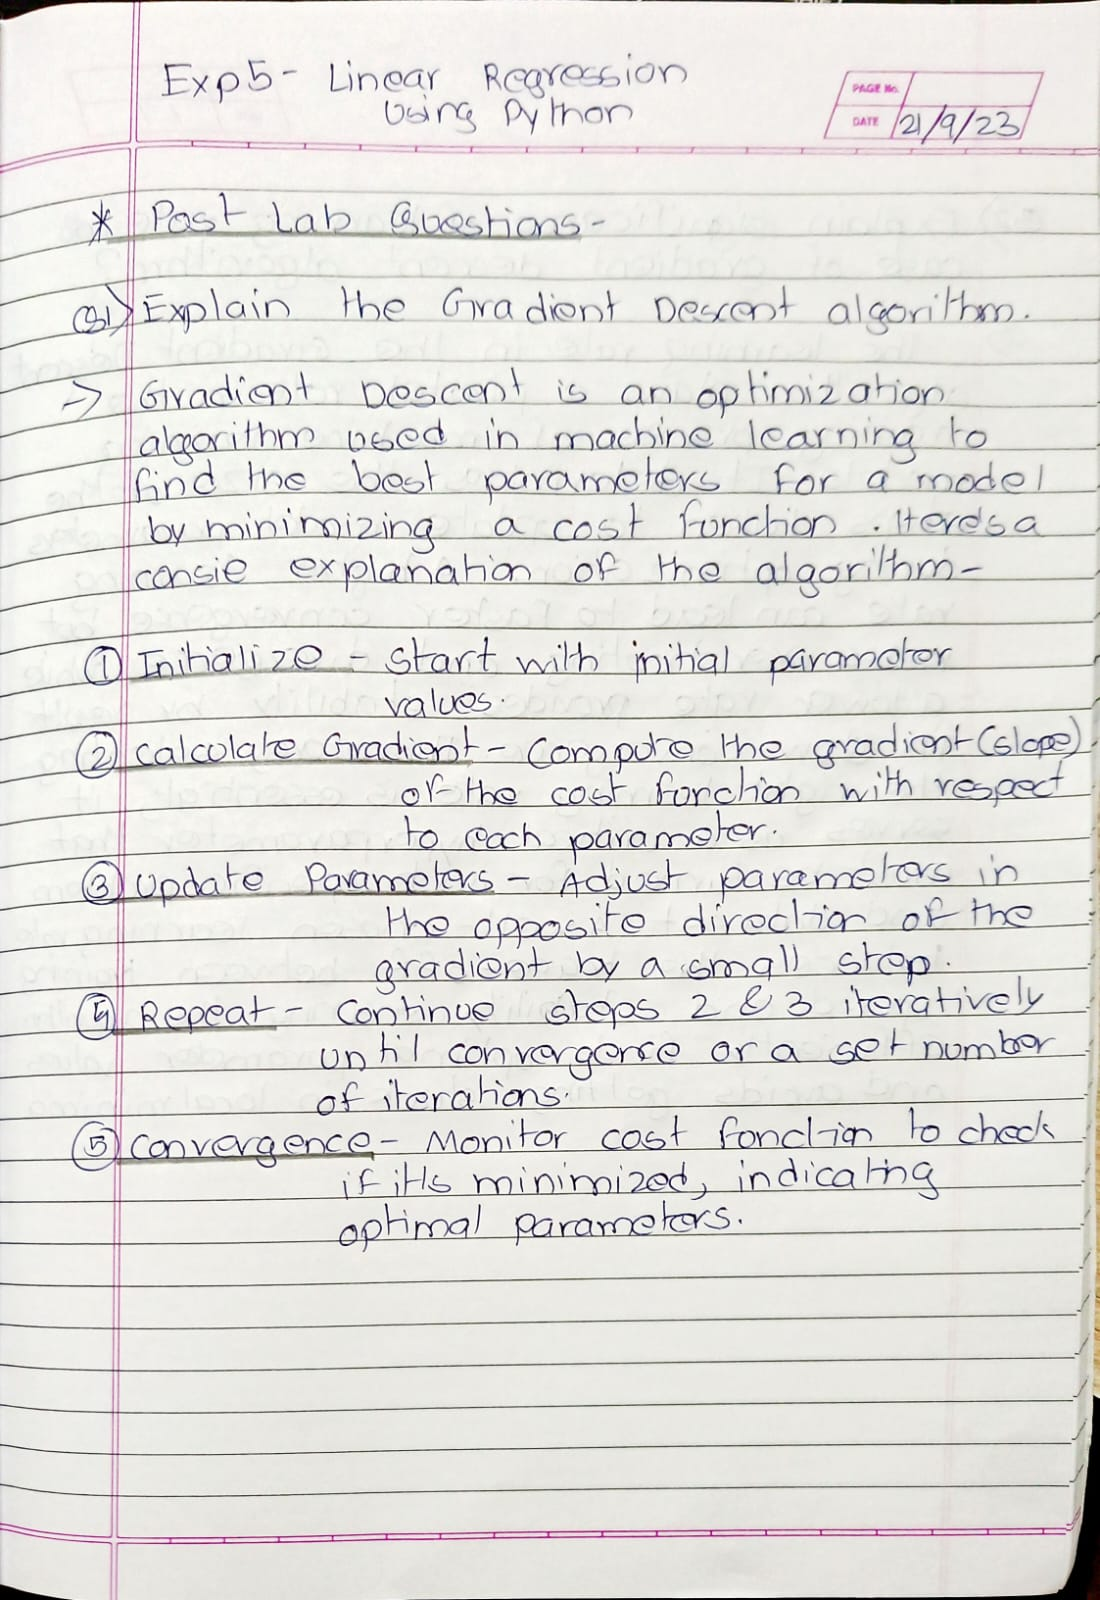 Exp5- Linear Regression
Using Python
PAGE No.
DATE 21/9/23
* Post Lab Questions-
Q1) Explain the Gradient Descent algorithm.
→ Gradient Descent is an optimization
algorithm used in machine learning to
find the best parameters for a model
by minimizing a cost function. Here's a
consie explanation of the algorithm-
① Initialize - Start with initial parameter
values.
② Calculate Gradient - Compute the gradient (slope)
of the cost function with respect
to each parameter.
③ Update Parameters - Adjust parameters in
the opposite direction of the
gradient by a small step.
④ Repeat - Continue steps 2 & 3 iteratively
until convergence or a set number
of iterations.
⑤ Convergence - Monitor cost function to check
if it's minimized, indicating
optimal parameters.